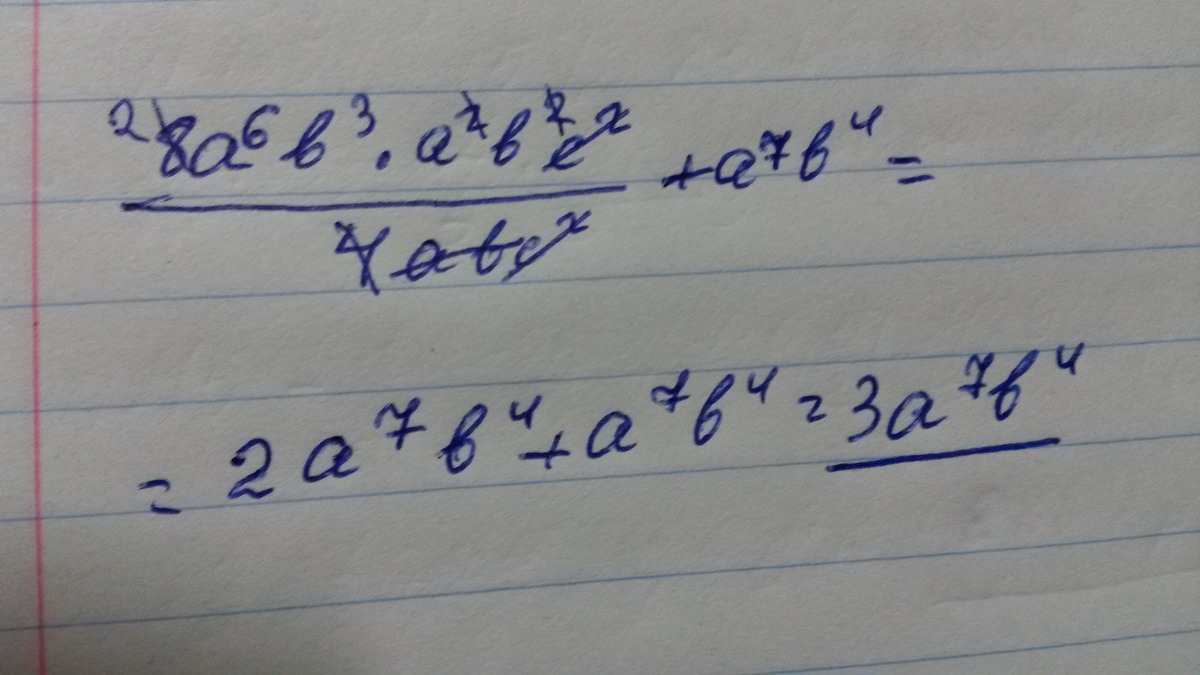 2 8a⁶b³ · a²b²cˣ / 4abcˣ + a⁷b⁴ =
= 2a⁷b⁴ + a⁷b⁴ = 3a⁷b⁴